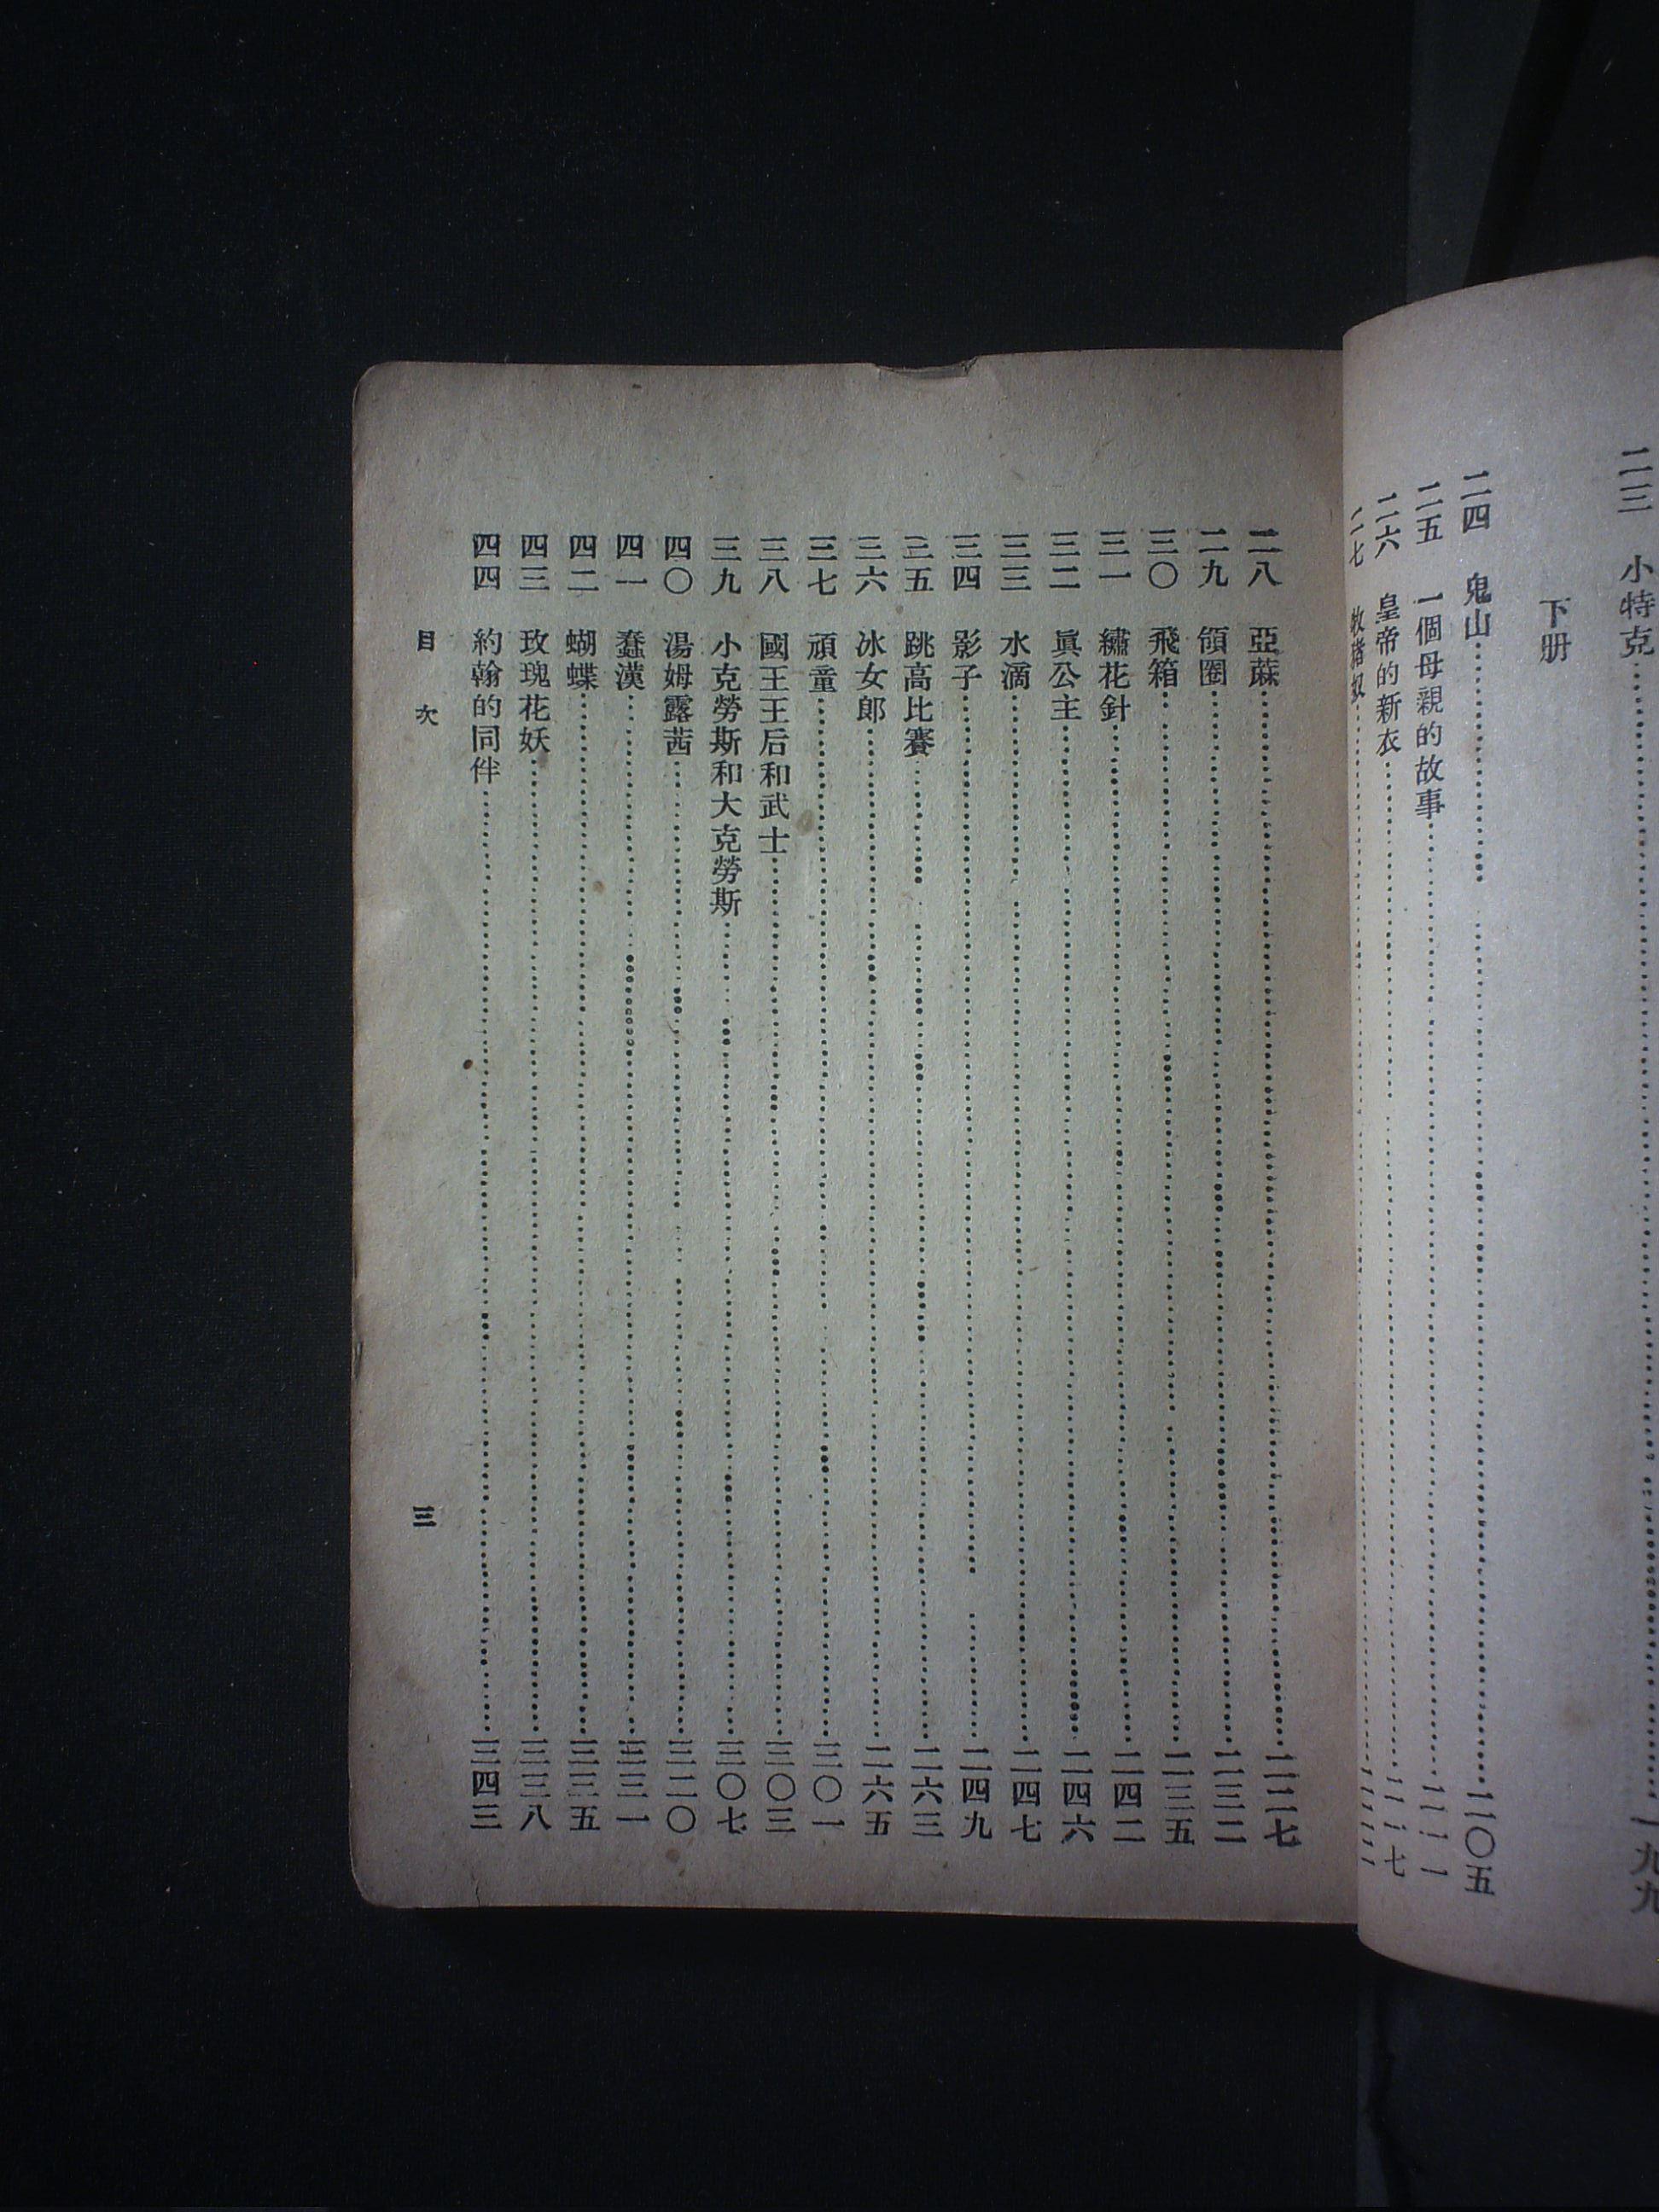 二三 小特克……一九九
下册
二四 鬼山……二〇五
二五 一個母親的故事……二一一
二六 皇帝的新衣……二一七
二七 牧豬奴……二二二
二八 亞蔴……二二七
二九 領圈……二三二
三〇 飛箱……二三五
三一 繡花針……二四二
三二 眞公主……二四六
三三 水滴……二四七
三四 影子……二四九
三五 跳高比賽……二六三
三六 冰女郎……二六五
三七 頑童……三〇一
三八 國王王后和武士……三〇三
三九 小克勞斯和大克勞斯……三〇七
四〇 湯姆露茜……三二〇
四一 蠢漢……三三一
四二 蝴蝶……三三五
四三 玫瑰花妖……三三八
四四 約翰的同伴……三四三
目次
三